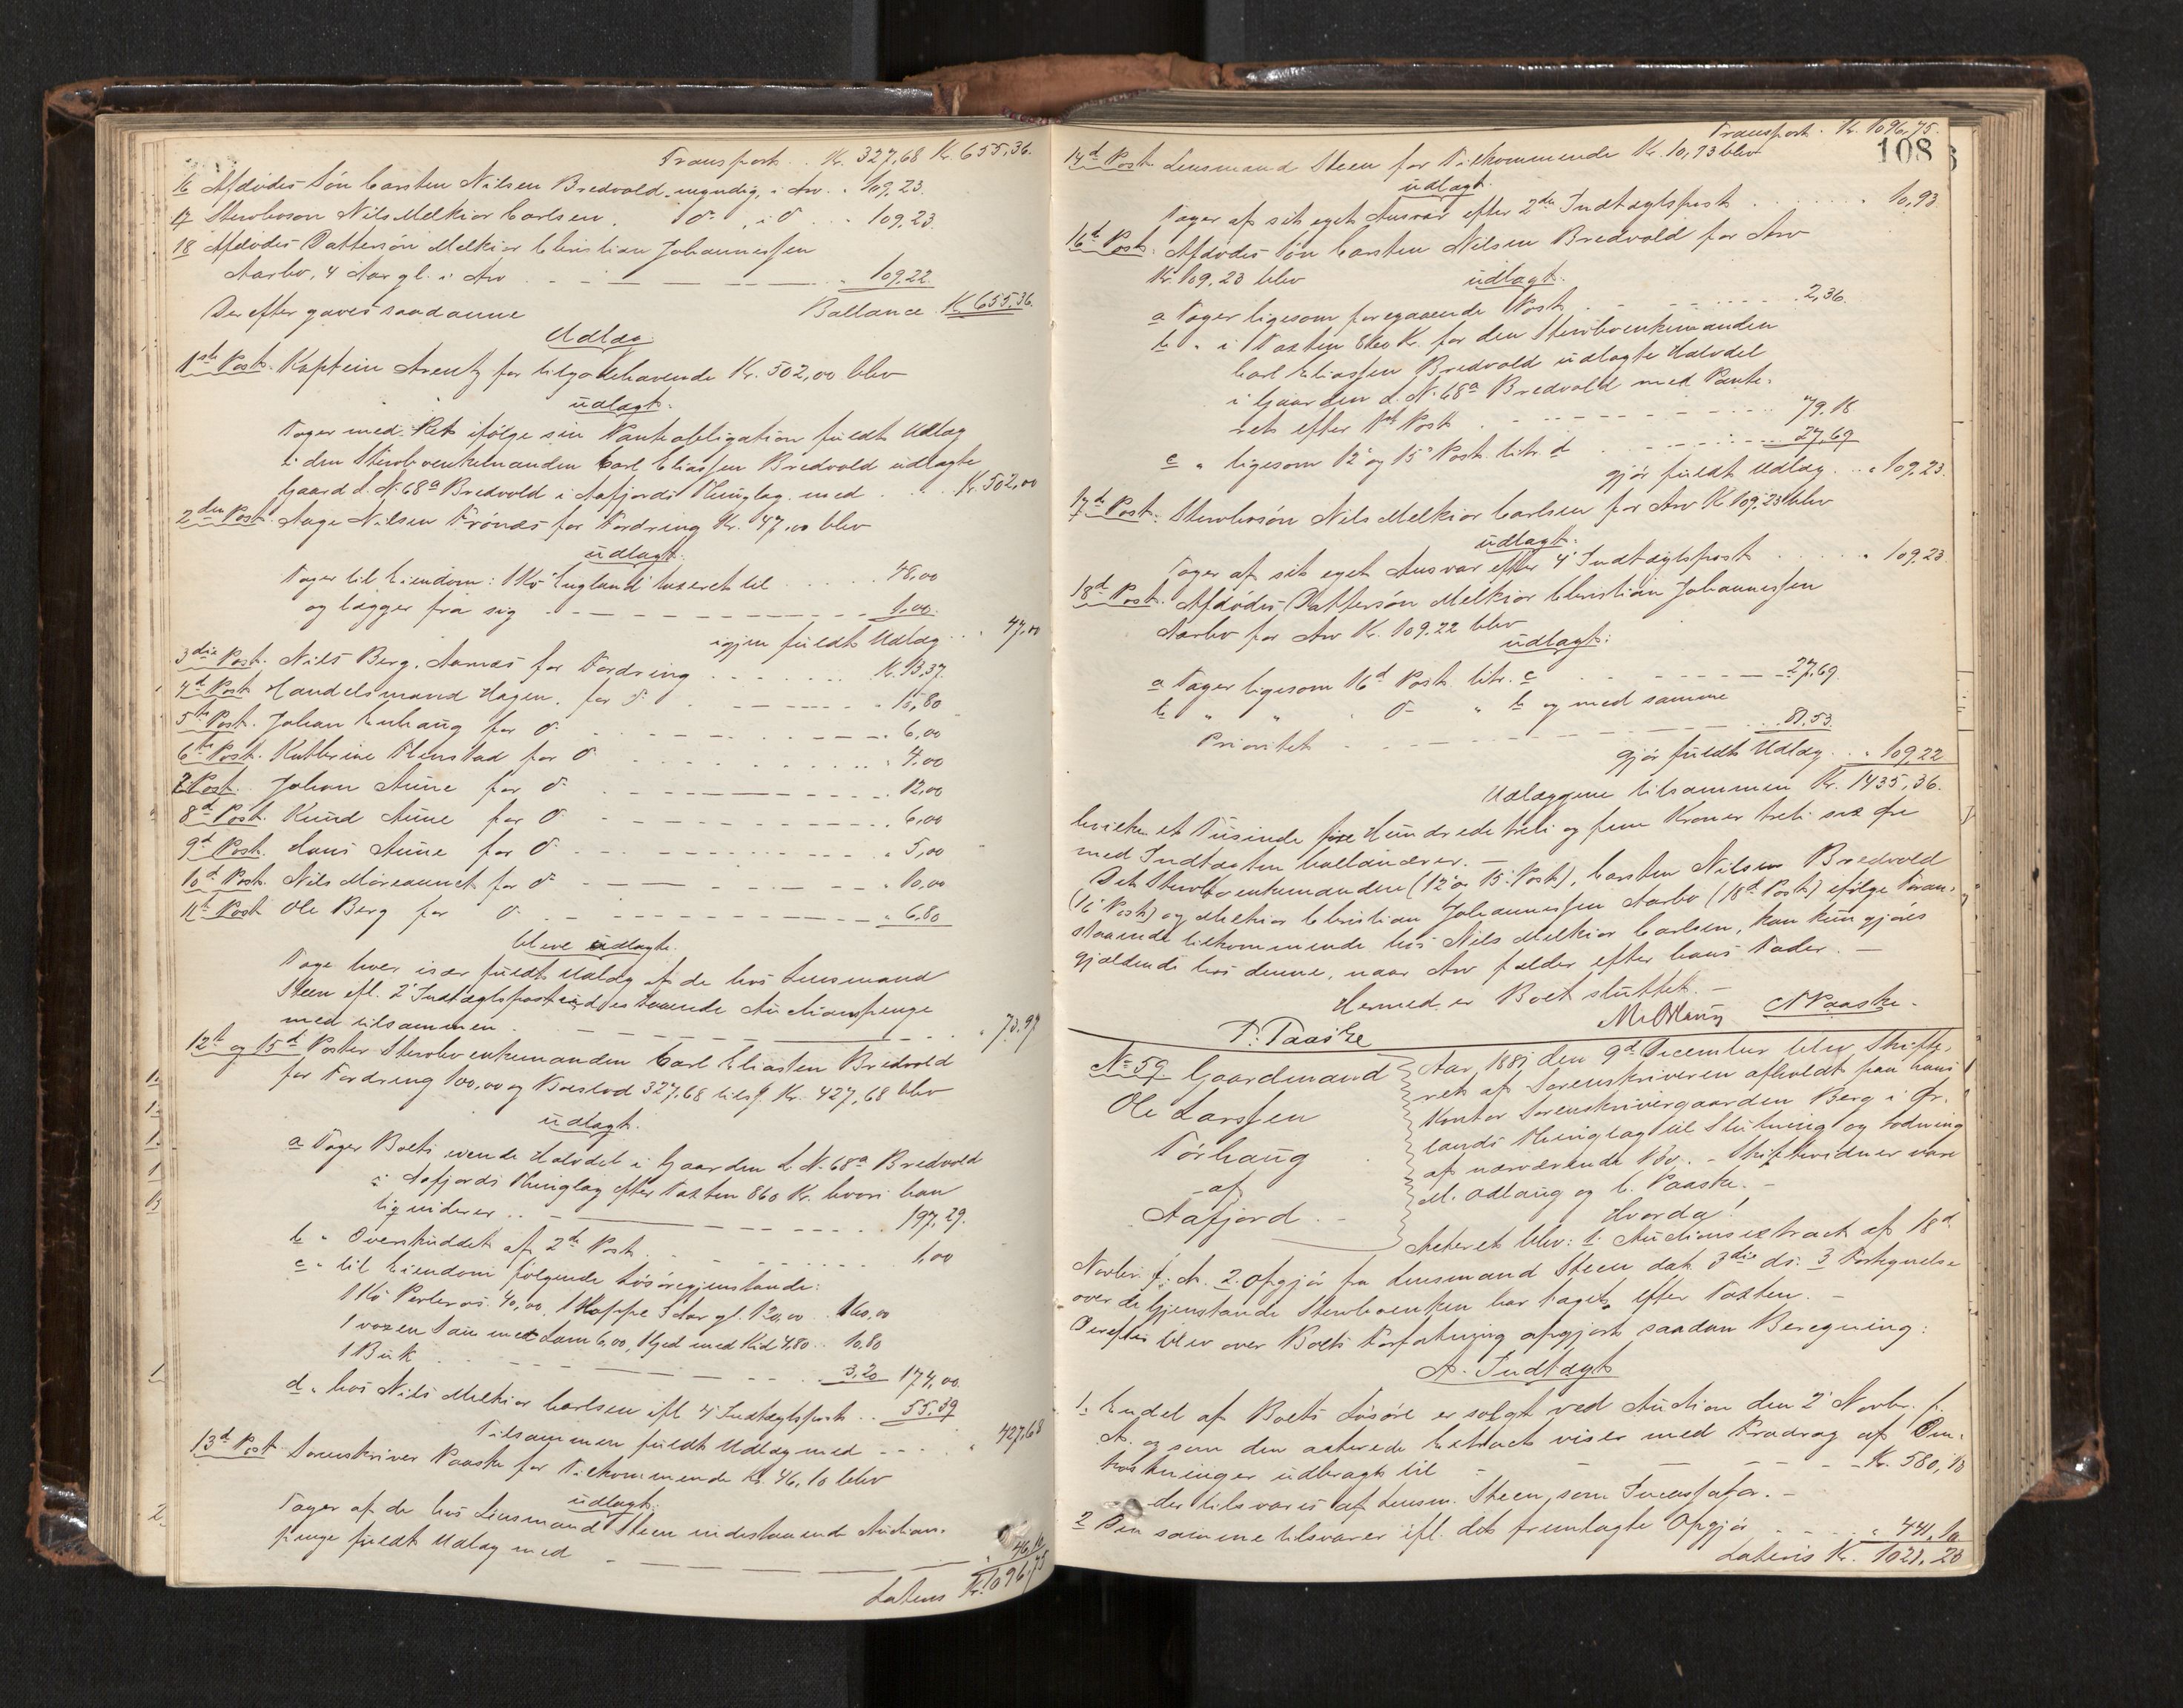 Transport . . Kr. 327,68 Kr. 655,36.
16 Afdødes Søn Carsten Nilsen Bredvold, myndig, i Arv. . 109,23.
17 Stervbosøn Nils Melkior Carlsen, d°, i d° . . . 109,23.
18 Afdødes Dattersøn Melkior Christian Johannessen
Aarbo, 4 Aar gl. i Arv . . . 109,22.
Ballance Kr. 655,36.
Derefter gaves saadanne
Udlæg
1ste Post. Kaptein Arentz for tilgodehavende Kr. 502,00 blev
udlagt.
Tager med Ret ifølge sin Pantobligation fuldt Udlæg
i den Stervboenkemanden Carl Eliassen Bredvold udlagte
Gaard L. N. 68a Bredvold i Aafjords Thinglag med . . . Kr. 502,00
2den Post. Aage Nilsen Frønæs for Fordring Kr. 47,00 blev
udlagt.
Tager til Eiendom: 1 Ko England taxeret til . . . 48,00
og lægger fra sig . . . 1,00.
igjen fuldt Udlæg . . . 47,00
3die Post. Nils Berg, Aanæs for Fordring . . . Kr. 13,37.
4d Post. Handelsmand Hagen, for d° . . . 15,80
5te Post. Johan Enhaug for d° . . . 6,00
6te Post. Kathrine Flenstad for d° . . . 4,00
7. Post. Johan Aune for d° . . . 12,00
8d Post. Knud Aune for d° . . . 6,00
9d Post. Hans Aune for d° . . . 5,00
10d Post. Nils Møreaunet for d° . . . 10,00
11te Post Ole Berg for d° . . . 6,80
bleve udlagte.
Tage hver især fuldt Udlæg af de hos Lensmand
Steen ifl. 2' Indtægtspost indestaaende Auctionspenge
med tilsammen . . . 78,97
12te og 15d Poster Stervboenkemanden Carl Eliassen Bredvold
for Fordring 100,00 og Boeslod 327,68 tils. Kr. 427,68 blev
udlagt.
a Tager Boets eiende Halvdel i Gaarden L. N. 68a Bredvold
i Aafjords Thinglag efter Taxten 860 Kr. hvori han
liqviderer . . . 197,29.
b " Overskuddet af 2den Post . . . 1,00
c " til Eiendom følgende Løsøregjenstande:
1 Ko Perleros. 40,00, 1 Hoppe 3 Aar gl. 120,00 . . 160,00
1 voxen Sau med Lam 6,00, 1 Gjed med Kid 4,80 . . 10,80
1 Buk . . . 3,20 174,00.
d " hos Nils Melkior Carlsen ifl 4' Indtægtspost . . 55,39
Tilsammen fuldt Udlæg med . . . 427,68
13d Post. Sorenskriver Paaske for Tilkommende Kr. 46,10 blev
udlagt.
Tager af de hos Lensmand Steen indestaaende Auctions-
penge fuldt Udlæg med . . . 46,10
Lateris Kr. 1096,75
Transport. Kr. 1096,75.
108
14d Post. Lensmand Steen for Tilkommende Kr. 10,93 blev
udlagt.
Tager af sit eget Ansvar efter 2den Indtægtspost . . . 10,93
16d Post. Afdødes Søn Carsten Nilsen Bredvold for Arv
Kr. 109,23 blev udlagt.
a Tager ligesom foregaaende Post . . . 2,36.
b " i Taxten 860 Kr. for den Stervboenkemanden
Carl Eliassen Bredvold udlagte Halvdel
i Gaarden L. N. 68a Bredvold med Pante-
ret efter 1ste Post . . . 79,18
c " ligesom 12' og 15' Post. litr. d . . . 27,69
gjør fuldt Udlæg . . . 109,23.
17d Post. Stervbosøn Nils Melkior Carlsen for Arv Kr. 109,23 blev
udlagt.
Tager af sit eget Ansvar efter 4' Indtægtspost . . . 109,23.
18d Post. Afdødes Dattersøn Melkior Christian Johannessen
Aarbo for Arv Kr. 109,22 blev
udlagt:
a Tager ligesom 16d Post. litr. c . . . 27,69.
b " " d° " b og med samme
Prioritet . . . 81,53.
gjør fuldt Udlæg . . . 109,22
Udlæggene tilsammen Kr. 1435,36.
hvilke et Tusinde fire Hundrede treti og fem Kroner treti sex Øre
med Indtægten ballancerer. —
Det Stervboenkemanden (12' og 15' Post), Carsten Nilsen Bredvold
(16' Post) og Melkior Christian Johannessen Aarbo (18d Post) ifølge Foran-
staaende tilkommende hos Nils Melkior Carlsen, kan kun gjøres
gjældende hos denne, naar Arv falder efter hans Fader. —
Hermed er Boet sluttet. —
P. Paaske M. Odlaug C. Paaske.
No 59 Gaardmand
Ole Larssen
Tørhaug
af
Aafjord. —
Aar 1881, den 9d December blev Skifte-
ret af Sorenskriveren afholdt paa hans
Kontor Sorenskrivergaarden Berg i Ør-
lands Thinglag til Slutning og Lodning
af nærværende Bo. — Skiftevidner vare
M. Odlaug og C. Paaske. —
Hvorda!
Acteret blev: 1. Auctionsextract af 18d
Novbr. f. A. 2. Opgjør fra Lensmand Steen dat 3die ds. 3 Fortegnelse
over de Gjenstande Stervboenken har taget efter Taxten. —
Derefter blev over Boets Forfatning opgjort saadan Beregning:
A. Indtægt
1. Endel af Boets Løsøre er solgt ved Auction den 2' Novbr. f.
A. og som den acterede Extract viser med Fradrag af Om-
kostninger udbragt til . . . Kr. 580,13
der tilsvares af Lensm. Steen, som Incassator. —
2 Den samme tilsvarer ifl. det fremlagte Opgjør . . . 441,10
Lateris Kr. 1021,23